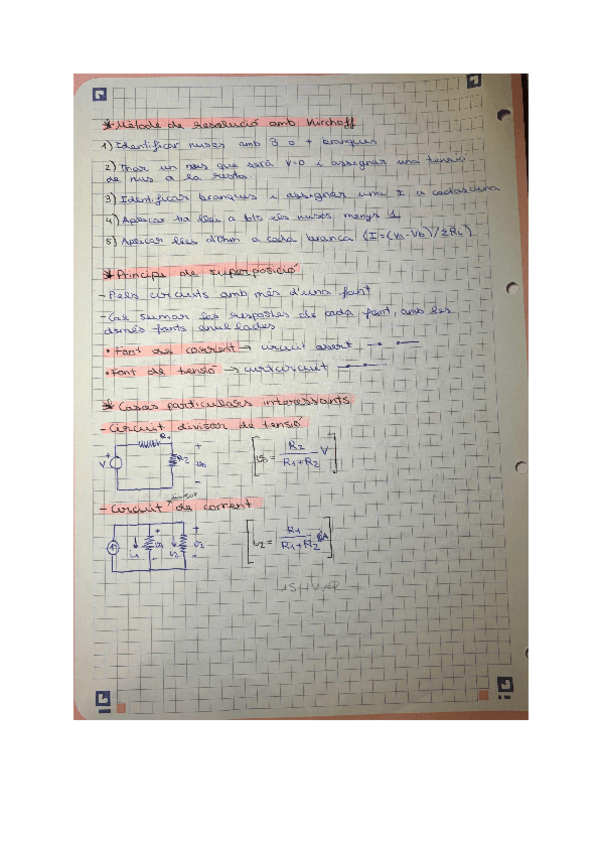 * Mètode de resolució amb Kirchoff
1) Identificar nusos amb 3 o + branques
2) Triar un nus que serà V=0 i assignar una tensió
de nus a la resta
3) Identificar branques i assignar una I a cadascuna
4) Aplicar 1a llei a tots els nusos menys 1
5) Aplicar llei d'Ohm a cada branca (I=(Va-Vb)/ΣRi)
* Principi de superposició
- Pels circuits amb més d'una font
- Cal sumar les respostes de cada font, amb les
demés fonts anul·lades
• Font de corrent → circuit obert
• Font de tensió → curtcircuit
* Casos particulars interessants
- Circuit divisor de tensió
R1
+ V R2 + -
= R2 / R1+R2 V
- Circuit divisor de corrent
i1 i2 + - + -
i2 = R1 / R1+R2